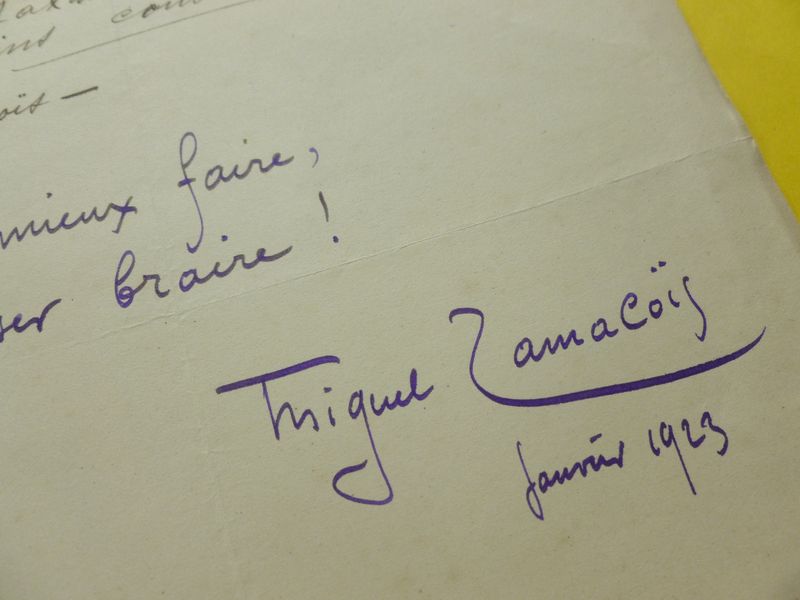 ins com
oïs —
mieux faire,
ser braire !
Miguel Zamacoïs
Janvier 1923